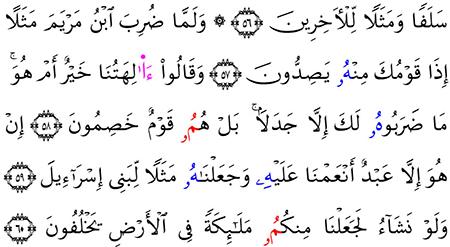 سَلَفًا وَمَثَلًا لِّلْأَخِرِينَ ۝٥٦ ۞ وَلَمَّا ضُرِبَ ٱبْنُ مَرْيَمَ مَثَلًا
إِذَا قَوْمُكَ مِنْهُۥ يَصِدُّونَ ۝٥٧ وَقَالُوٓاْ ءَا۬لِهَتُنَا خَيْرٌ أَمْ هُوَۚ
مَا ضَرَبُوهُۥ لَكَ إِلَّا جَدَلَۢاۚ بَلْ هُمُۥ قَوْمٌ خَصِمُونَ ۝٥٨ إِنْ
هُوَ إِلَّا عَبْدٌ أَنْعَمْنَا عَلَيْهِۦ وَجَعَلْنَٰهُۥ مَثَلًا لِّبَنِىٓ إِسْرَٰٓءِيلَ ۝٥٩
وَلَوْ نَشَآءُ لَجَعَلْنَا مِنكُمُۥ مَلَٰٓئِكَةً فِى ٱلْأَرْضِ يَخْلُفُونَ ۝٦٠